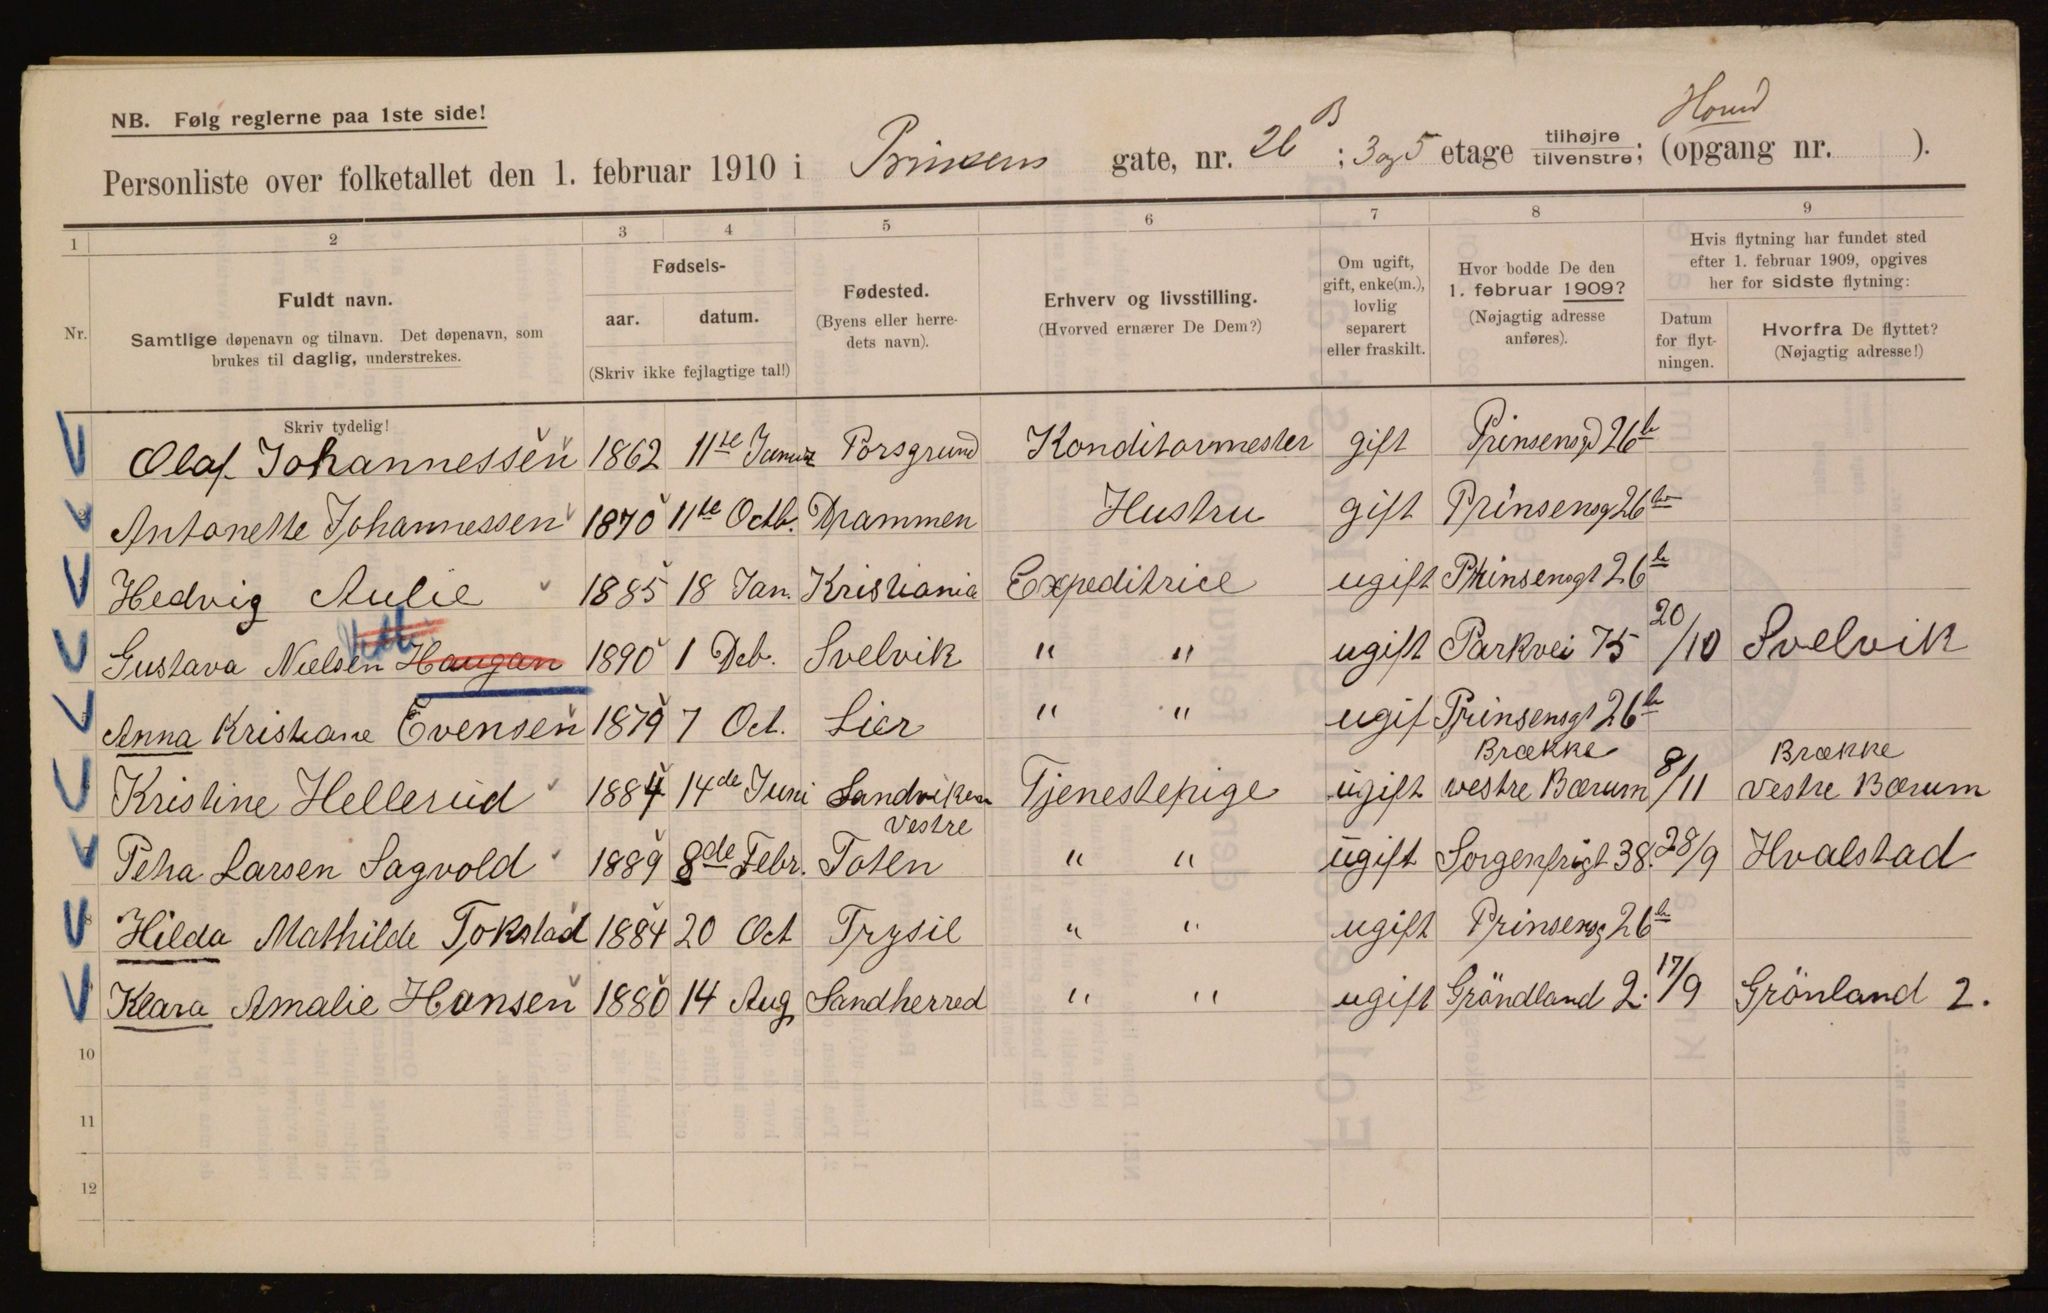 NB. Følg reglerne paa 1ste side!
Personliste over folketallet den 1. februar 1910 i Prinsens gate, nr. 26 B ; 3 og 5 etage tilhøjre tilvenstre; (opgang nr. ).
1 2 3 4 5 6 7 8 9
Nr.
Fuldt navn.
Samtlige døpenavn og tilnavn. Det døpenavn, som
brukes til daglig, understrekes.
Fødsels-
aar. datum.
(Skriv ikke fejlagtige tal!)
Fødested.
(Byens eller herre-
dets navn).
Erhverv og livsstilling.
(Hvorved ernærer De Dem?)
Om ugift,
gift, enke(m.),
lovlig
separert
eller fraskilt.
Hvor bodde De den
1. februar 1909?
(Nøjagtig adresse
anføres).
Hvis flytning har fundet sted
efter 1. februar 1909, opgives
her for sidste flytning:
Datum
for flyt-
ningen.
Hvorfra De flyttet?
(Nøjagtig adresse!)
Skriv tydelig!
Olaf Johannessen 1862 11te Porsgrund Konditormester gift Prinsensgd 26b
Antonette Johannessen 1870 11te Octb. Drammen Hustru gift Prinsensg 26b
Hedvig Aulie 1885 18 Jan. Kristiania Expeditrice ugift Prinsensgt 26b
Gustava Nielsen Haugan 1890 1 Deb. Svelvik " " ugift Parkvei 75 20/10 Svelvik
Anna Kristiane Evensen 1879 7 Oct. Lier " " ugif Prinsensgt 26b
Brække Brække
Kristine Hellerud 1884 14de Juni Sandviken Tjenestepige ugift vestre Bærum 8/11 Vestre Bærum
Vestre
Petra Larsen Sagvold 1889 8de Febr. Toten " " ugift Sorgenfrigt 38. 28/9 Hvalstad
8 Hilda Mathilde Tokstad 1884 20 Oct Trysil " " ugift Prinsensg 26b
Klara Amalie Hansen 1880 14 Aug Sandherred " " ugift Gröndland 2. 17/9 Grönland 2.
10
11
12